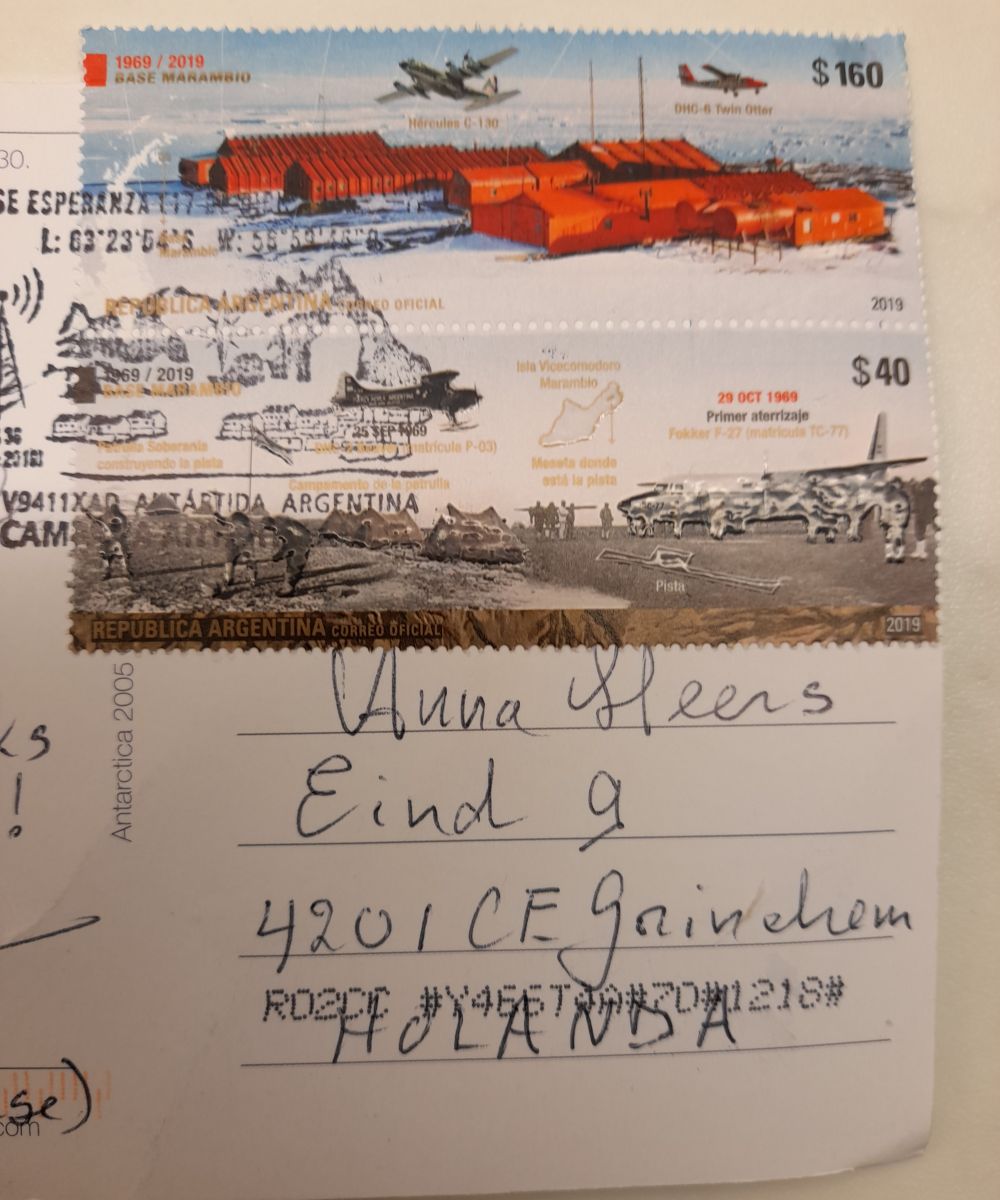 1969 / 2019
BASE MARAMBIO
$160
Hércules C-130
DHC-6 Twin Otter
30.
SE ESPERANZA
L: 63°23'54"S W: 56°59'46"
Marambio
REPÚBLICA ARGENTINA CORREO OFICIAL
2019
1969 / 2019
BASE MARAMBIO
$40
Isla Vicecomodoro
Marambio
29 OCT 1969
Primer aterrizaje
Fokker F-27 (matrícula TC-77)
25 SEP 1969
(matrícula P-03)
Patrulla Soberanía
construyendo la pista
Campamento de la patrulla
Meseta donde
está la pista
V9411XAD ANTÁRTIDA ARGENTINA
CAM
Pista
REPÚBLICA ARGENTINA CORREO OFICIAL
2019
Antarctica 2005
ks
!
Anna Heers
Eind 9
4201 CE Gorinchem
HOLANDA
se)
com